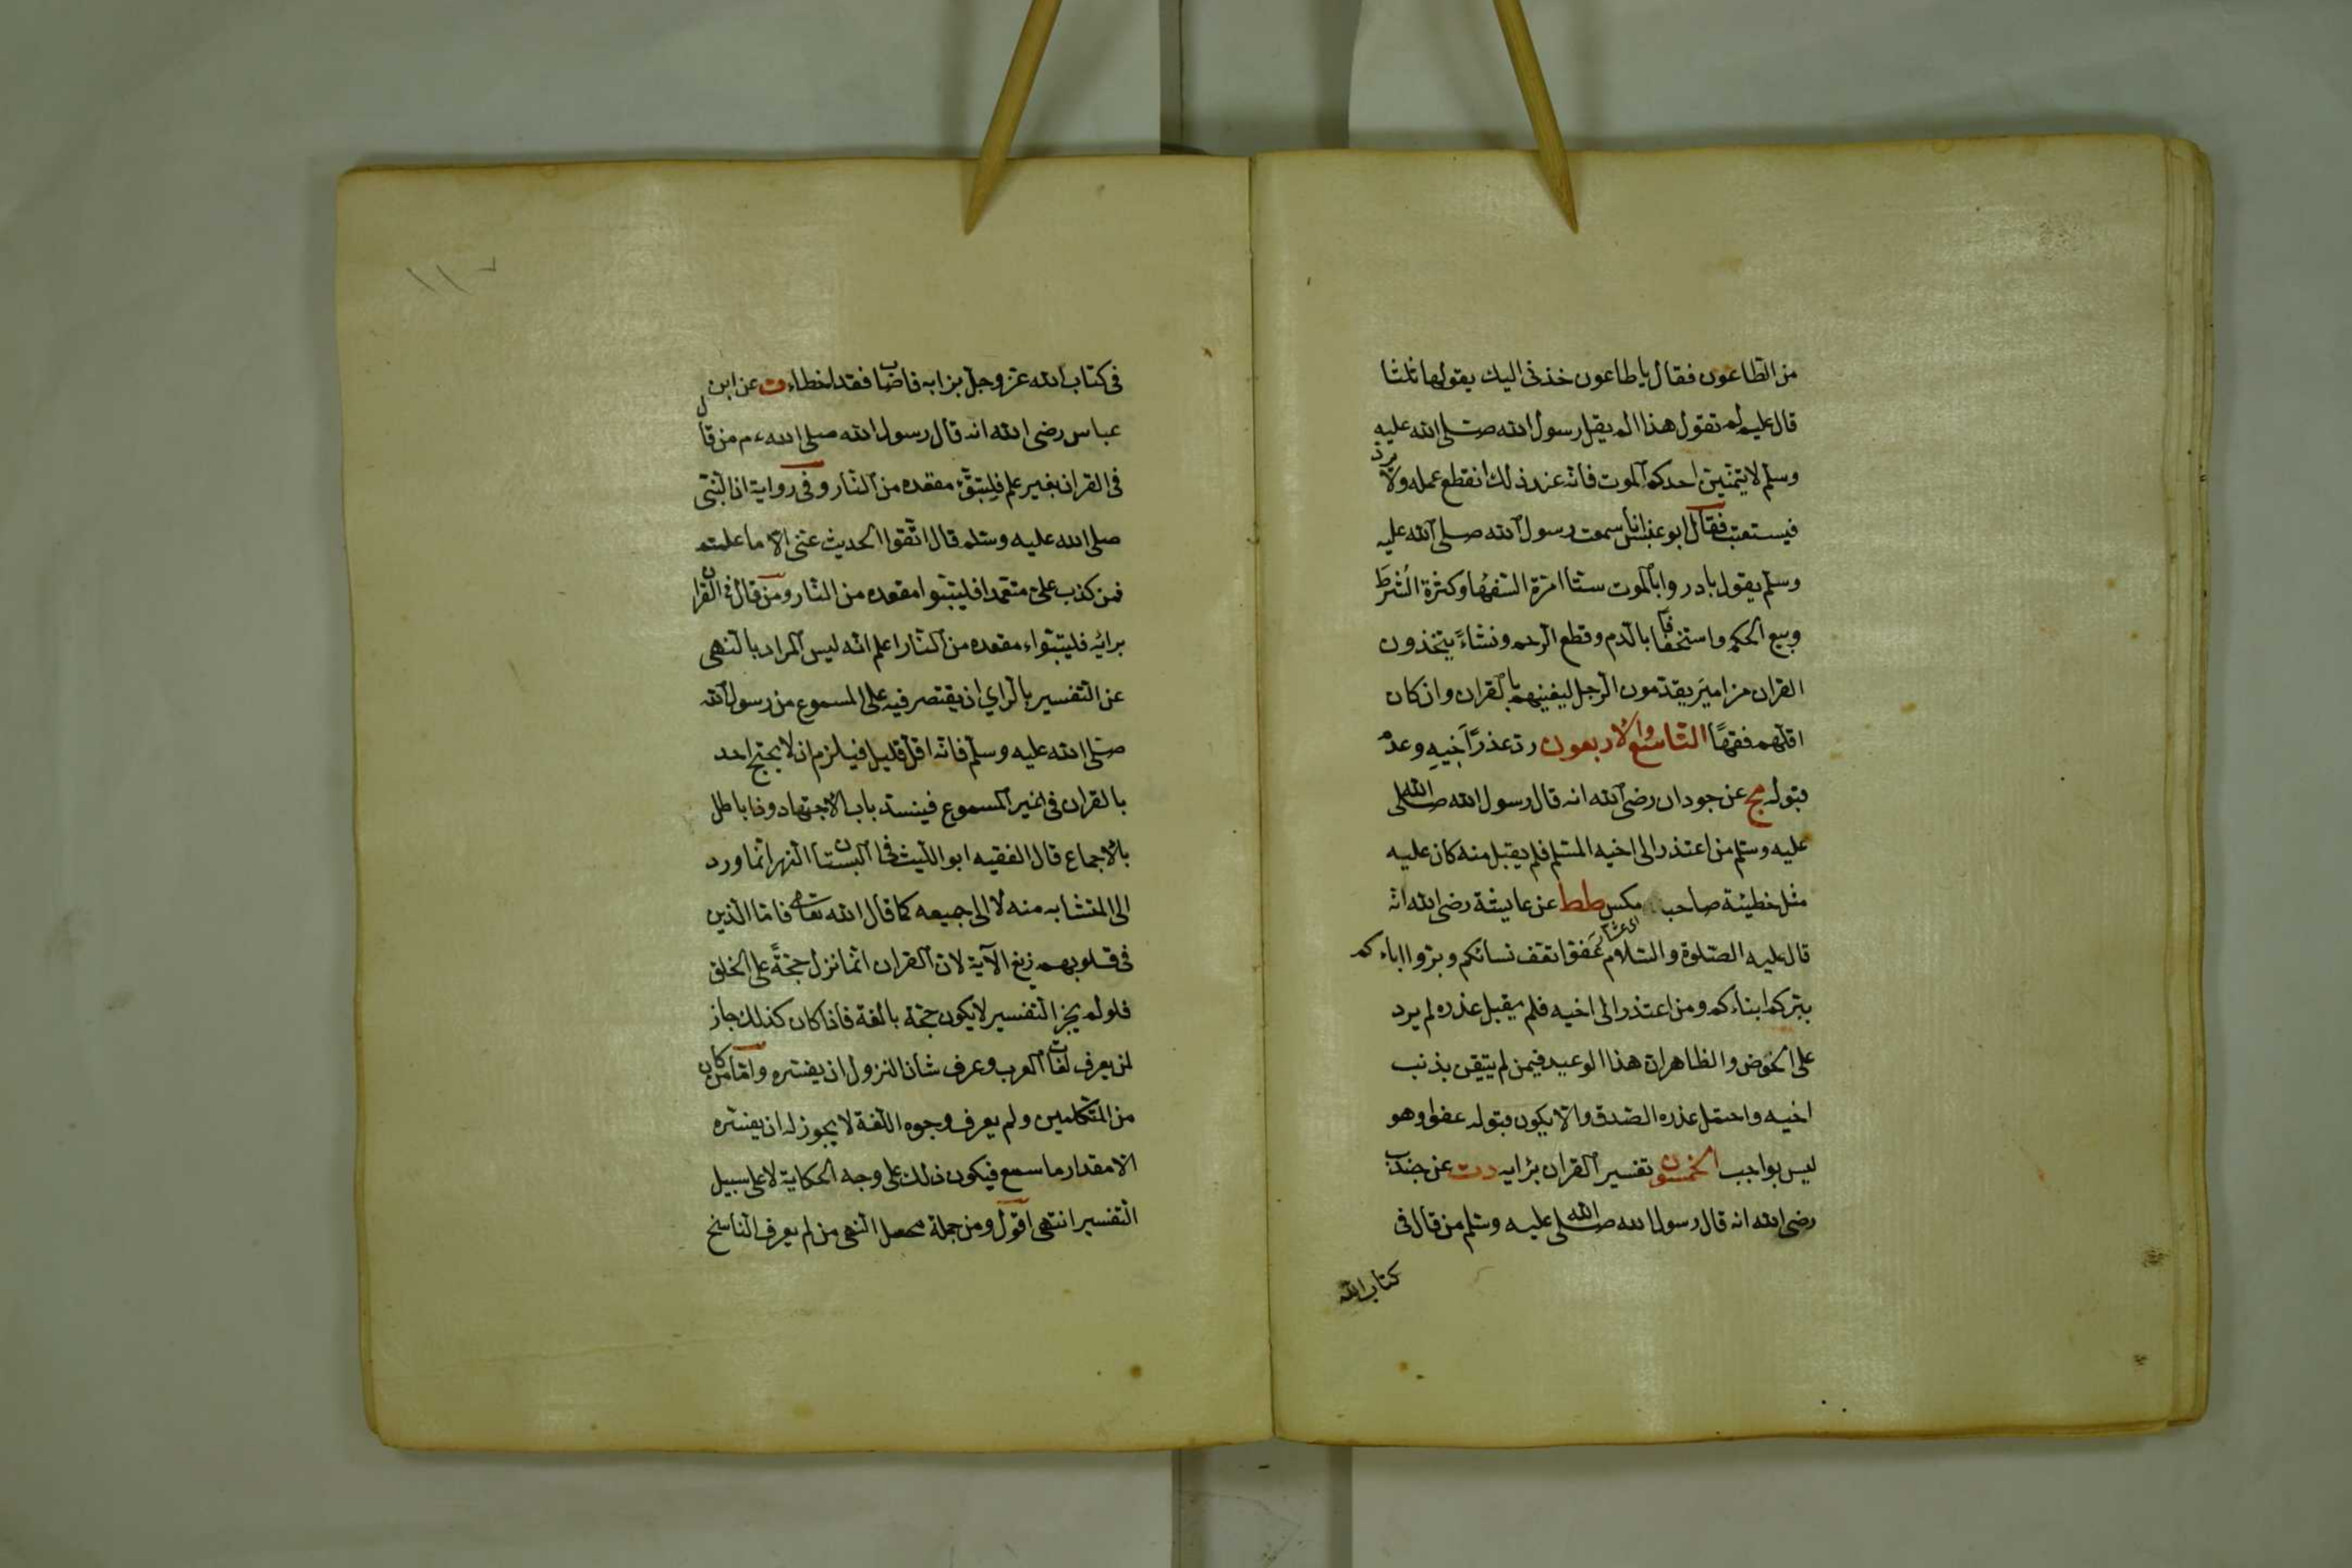 من الطاعون فقال يا طاعون خذنى اليك يقولها ثلثا
قال عليم لم تقول هذا الم يقل رسول الله صلى الله عليه
وسلم لا يتمنين احدكم الموت فانه عند ذلك انقطع عمله ولا يرد
فيستعتب فقال ابو عبس انا سمعت رسول الله صلى الله عليه
وسلم يقول بادروا بالموت ستا امرة السفها وكثرة الشرط
وبيع الحكم واستخفافا بالدم وقطع الرحم ونشاء يتخذون
القران مزامير يقدمون الرجل ليغنيهم بالقران وان كان
اقلهم فقها التاسع والاربعون رد عذر اخيه وعدم
قبوله مج عن جودان رضى الله انه قال رسول الله صلى الله
عليه وسلم من اعتذر الى اخيه المسلم فلم يقبل منه كان عليه
مثل خطيئة صاحب مكس طط عن عايشة رضى الله انه
اى عشار
قال عليه الصلوة والسلام عفوا تعف نسائكم وبروا اباءكم
يبركم ابناءكم ومن اعتذر الى اخيه فلم يقبل عذره لم يرد
على الحوض والظاهر ان هذا الوعيد فيمن لم يتيقن بذنب
اخيه واحتمل عذره الصدق والا يكون قبوله عفوا وهو
ليس بواجب الخمسون تفسير القران برايه دت عن جندب
رضى الله انه قال رسول الله صلى الله عليه وسلم من قال فى
كتاب الله
فى كتاب الله عز وجل برايه فاصاب فقد اخطاء ت عن ابن
عباس رضى الله انه قال رسول الله صلى الله ءم من قال
فى القران بغير علم فليتبوء مقعده من النار وفى رواية ان النبى
صلى الله عليه وسلم قال اتقوا الحديث عنى الا ما علمتم
فمن كذب على متعمدا فليتبوا مقعده من النار ومن قال فى القران
برائه فليتبواء مقعده من النار اعلم انه ليس المراد بالنهى
عن التفسير بالراي ان يقتصر فيه على المسموع من رسول الله
صلى الله عليه وسلم فانه اقل قليل فيلزم ان لا يحتج احد
بالقران فى غير المسموع فينسد باب الاجتهاد وذا باطل
بالاجماع قال الفقيه ابو الليث فى البستان النهى انما ورد
الى المتشابه منه لا الى جميعه كما قال الله تعالى فاما الذين
فى قلوبهم زيغ الآية لان القران انما نزل حجة على الخلق
فلو لم يجز التفسير لا يكون حجة بالغة فاذا كان كذلك جاز
لمن يعرف لغات العرب وعرف شان النزول ان يفسره واما من كان
من المتكلمين ولم يعرف وجوه اللغة لا يجوز له ان يفسره
الا مقدار ما سمع فيكون ذلك على وجه الحكاية لا على سبيل
التفسير انتهى اقول ومن جملة محصل النهى من لم يعرف الناسخ